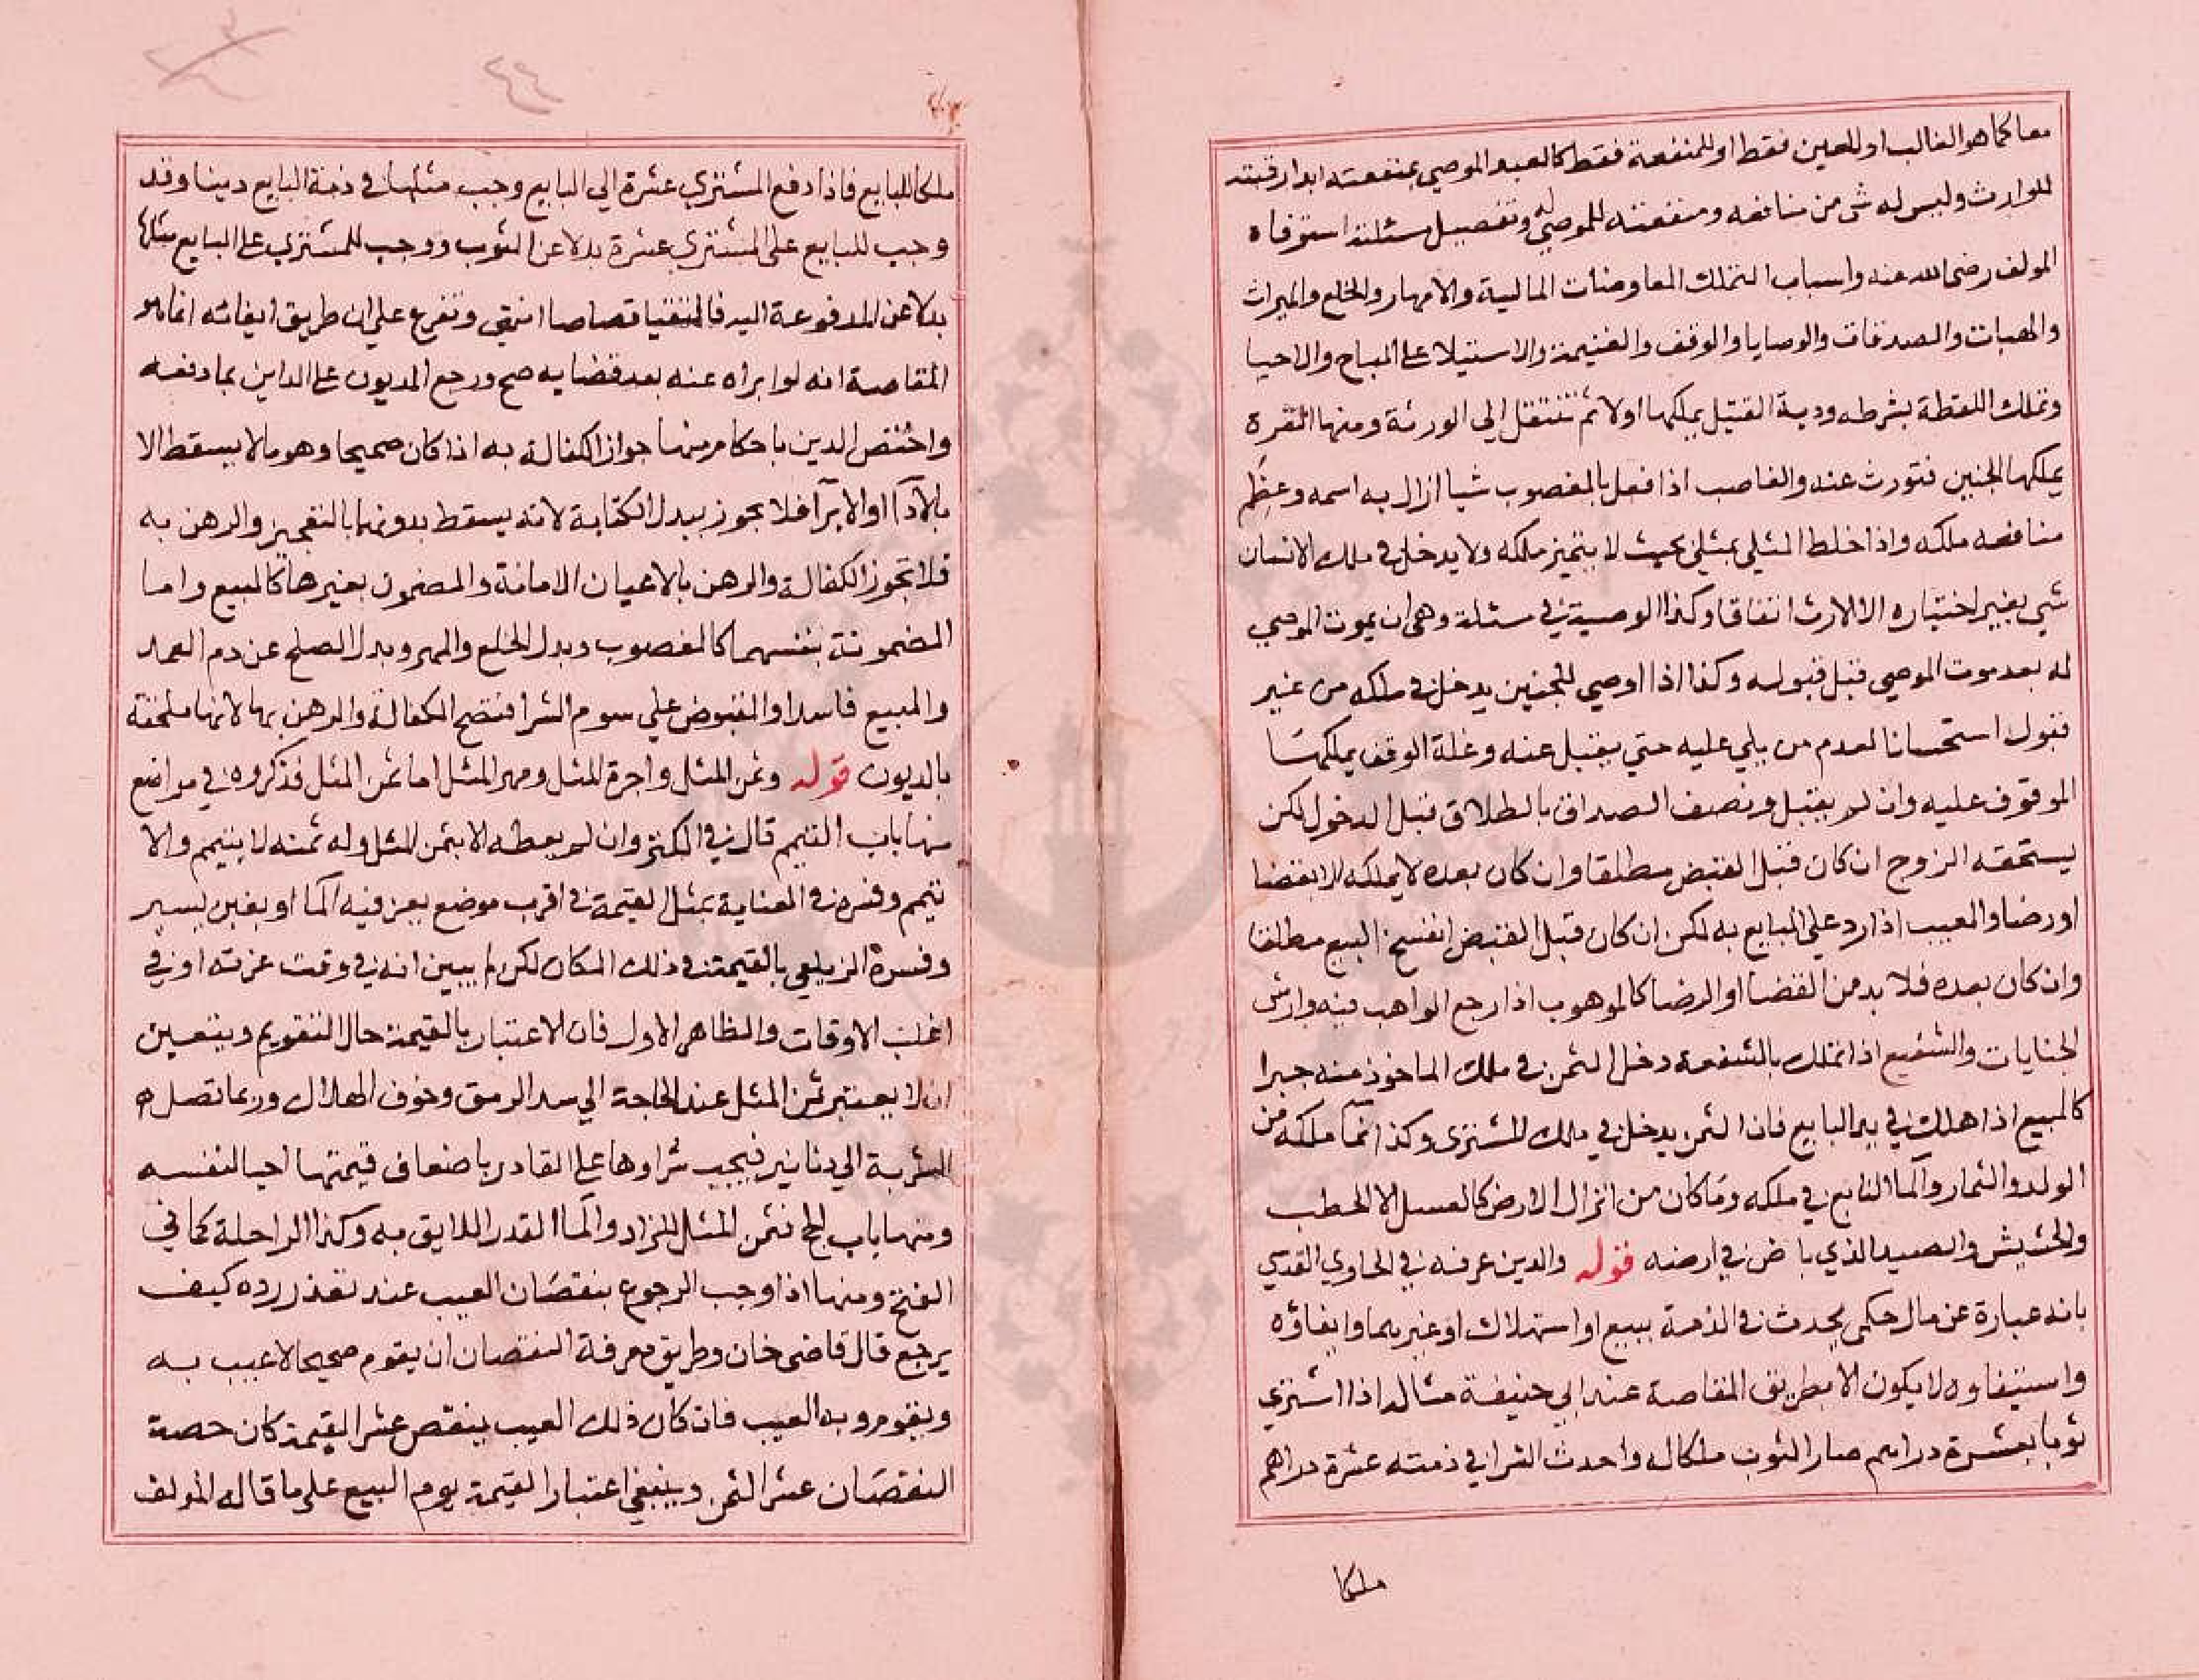 معا كما هو الغالب او للعين فقط او للمنفعة فقط كالعبد الموصي بمنفعته ابدا رقبته
للوارث وليس له شى من منافعه ومنفعته للموصي له وتفصيل مسئلته استوفاه
المولف رضى الله عنه واسباب التملك المعاوضات المالية والامهار والخلع والميراث
والهبات والصدقات والوصايا والوقف والغنيمة والاستيلا على المباح والاحيا
وتملك اللقطة بشرطه ودية القتيل يملكها اولا ثم تنتقل الى الورثة ومنها الغرة
يملكها الجنين فتورث عنه والغاصب اذا فعل بالمغصوب شيا ازال به اسمه وعظم
منافعه ملكه واذا خلط المثلي بمثلي بحيث لا يتميز ملكه ولا يدخل في ملك الانسان
شي بغير اختياره الا الارث اتفاقا وكذا الوصية في مسئلة وهى ان يموت الموصي
له بعد موت الموصي قبل قبوله وكذا اذا اوصي للجنين يدخل في ملكه من غير
قبول استحسانا لعدم من يلي عليه حتي يقبل عنه وغلة الوقف يملكها
الموقوف عليه وان لم يقبل ونصف الصداق بالطلاق قبل الدخول لكن
يستحقه الزوج ان كان قبل القبض مطلقا وان كان بعده لا يملكه الا بقضا
او رضا والمعيب اذا رد على البايع به لكن ان كان قبل القبض انفسخ البيع مطلقا
وان كان بعده فلا بد من القضا او الرضا كالموهوب اذا رجع الواهب فيه وارش
الجنايات والشفيع اذا تملك بالشفعة دخل الثمن في ملك الماخوذ منه جبرا
كالمبيع اذا هلك في يد البايع فان الثمن يدخل في ملك المشترى وكذا نما ملكه من
الولد والثمار والما النابع في ملكه وما كان من انزال الارض كالعسل الا الحطب
والحشيش والصيد الذي باض في ارضه قوله والدين عرفه في الحاوي القدسي
بانه عبارة عن مال حكمي يحدث في الذمة ببيع او استهلاك او غيرهما وايفاؤه
واستيفاوه لا يكون الا بطريق المقاصة عند ابي حنيفة مثاله اذا اشتري
ثوبا بعشرة دراهم صار الثوب ملكا له واحدث الشرا في ذمته عشرة دراهم
ملكا
ملكا للبايع فاذا دفع المشتري عشرة الي البايع وجب مثلها في ذمة البايع دينا وقد
وجب للبايع على المشتري عشرة بدلا عن الثوب ووجب للمشتري على البايع مثلها
بدلا عن المدفوعة اليه فالتقيا قصاصا انتهى وتفرع على ان طريق ايفائه انما هو
المقاصة انه لو ابراه عنه بعد قضايه صح ورجع المديون على الداين بما دفعه
واختص الدين باحكام منها جواز الكفالة به اذا كان صحيحا وهو ما لا يسقط الا
بالادا او الابرآ فلا يجوز ببدل الكتابة لانه يسقط بدونهما بالتعجيز والرهن به
فلا تجوز الكفالة والرهن بالاعيان الامانة والمضمون بغيرها كالمبيع واما
المضمونة بنفسها كالمغصوب وبدل الخلع والمهر وبدل الصلح عن دم العمد
والمبيع فاسدا والمقبوض علي سوم الشرا فتصح الكفالة والرهن بها لانها ملحقة
بالديون قوله وثمن المثل واجرة المثل ومهر المثل اما ثمن المثل فذكروه في مواضع
منها باب التيمم قال في الكنز وان لم يعطه الا بثمن المثل وله ثمنه لا يتيمم والا
تيمم وفسره في العناية بمثل القيمة في اقرب موضع يعز فيه الما او بغبن يسير
وفسره الزيلعي بالقيمة في ذلك المكان لكن لم يبين انه في وقت عزته او في
اغلب الاوقات والظاهر الاول فان الاعتبار بالقيمة حال التقويم ويتعين
ان لا يعتبر ثمن المثل عند الحاجة الي سد الرمق وخوف الهلاك وربما تصل
الشربة الي دنانير فيجب شراوها على القادر باضعاف قيمتها احيا لنفسه
ومنها باب الحج فثمن المثل للزاد والما القدر اللايق به وكذا الراحلة كما في
الفتح ومنها اذا وجب الرجوع بنقصان العيب عند تعذر رده كيف
يرجع قال قاضى خان وطريق معرفة النقصان ان يقوم صحيحا لا عيب به
ويقوم وبه العيب فان كان ذلك العيب ينقص عشر القيمة كان حصة
النقصان عشر الثمن وينبغي اعتبار القيمة يوم البيع على ما قاله المولف